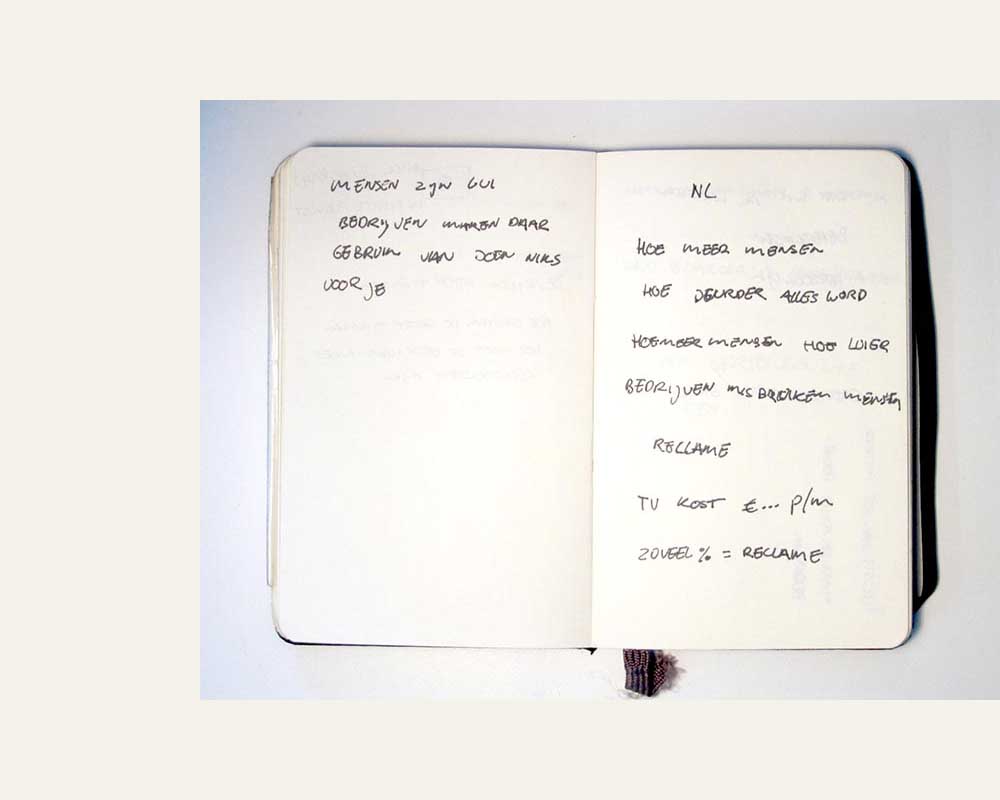 MENSEN ZIJN LUI
BEDRIJVEN MAKEN DAAR
GEBRUIK VAN DOEN NIKS
VOOR JE
NL
HOE MEER MENSEN
HOE DEURDER ALLES WORD
HOE MEER MENSEN HOE LUIER
BEDRIJVEN MISBRUIKEN MENSEN
RECLAME
TV KOST €... P/M
ZOVEEL % = RECLAME